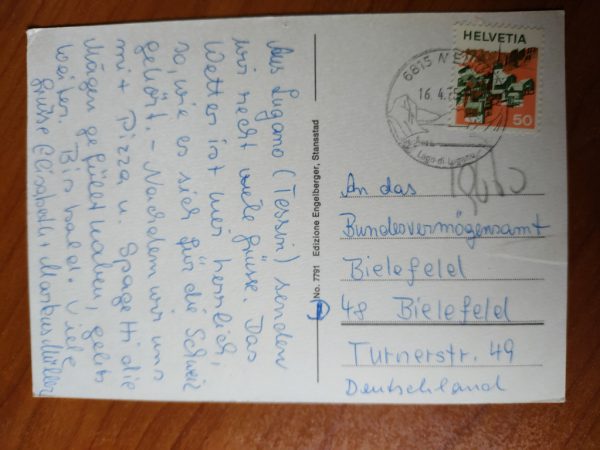 Aus Lugano (Tessin) senden
wir recht viele Grüsse. Das
Wetter ist hier herrlich,
so, wie es sich für die Schweiz
gehört. - Nachdem wir uns
mit Pizza u. Spagetti die
Mägen gefüllt haben, gehts
weiter. Bis bald. Viele
Grüsse Elisabeth + Markus Müller
No. 7791 Edizione Engelberger, Stansstad
HELVETIA
50
6815
16.4.
Lago di Lugano
An das
Bundesvermögensamt
Bielefeld
48 Bielefeld
Turnerstr. 49
Deutschland